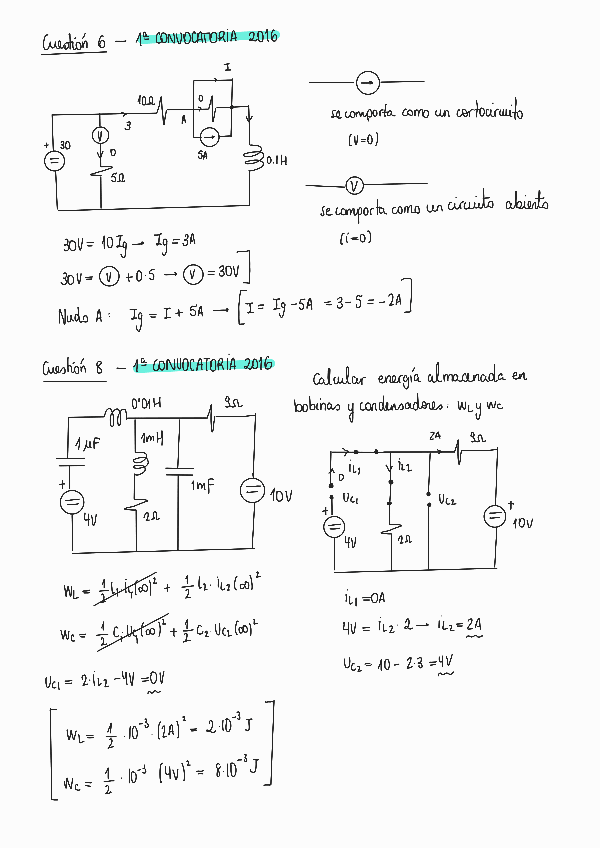 Cuestión 6 – 1ª CONVOCATORIA 2016
I
10Ω
0
A
3
+
30
V
0
5Ω
5A
0.1H
se comporta como un cortocircuito
(V=0)
V
se comporta como un circuito abierto
(i=0)
30V = 10 Ig → Ig = 3A
30V = V + 0·5 → V = 30V]
Nudo A: Ig = I + 5A → [I = Ig - 5A = 3 - 5 = -2A]
Cuestión 8 – 1ª CONVOCATORIA 2016
Calcular energía almacenada en
bobinas y condensadores. WL y WC
0'01H
3Ω
1μF
1mH
1mF
+
4V
2Ω
10V
2A
3Ω
iL1
iL2
0
UC1
UC2
+
4V
2Ω
+
10V
WL = 1/2 L1 iL1(∞)² + 1/2 L2 · iL2(∞)²
WC = 1/2 C1 UC1(∞)² + 1/2 C2 UC2(∞)²
UC1 = 2·iL2 - 4V = 0V
iL1 = 0A
4V = iL2 · 2 → iL2 = 2A
UC2 = 10 - 2·3 = 4V
[WL = 1/2 · 10⁻³ · (2A)² = 2·10⁻³ J
WC = 1/2 · 10⁻³ (4V)² = 8·10⁻³ J]